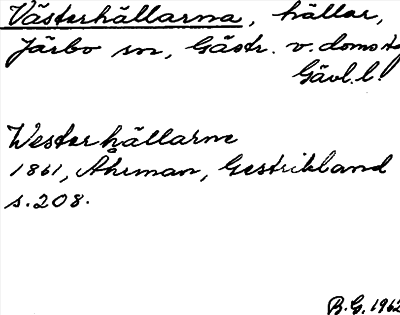 Västerhällarna, hällar,
Järbo sn, Gästr. v. doms
Gävl.l.
Westerhällarne
1861, Ahrman, Gestrikland
s.208.
B.G. 1962